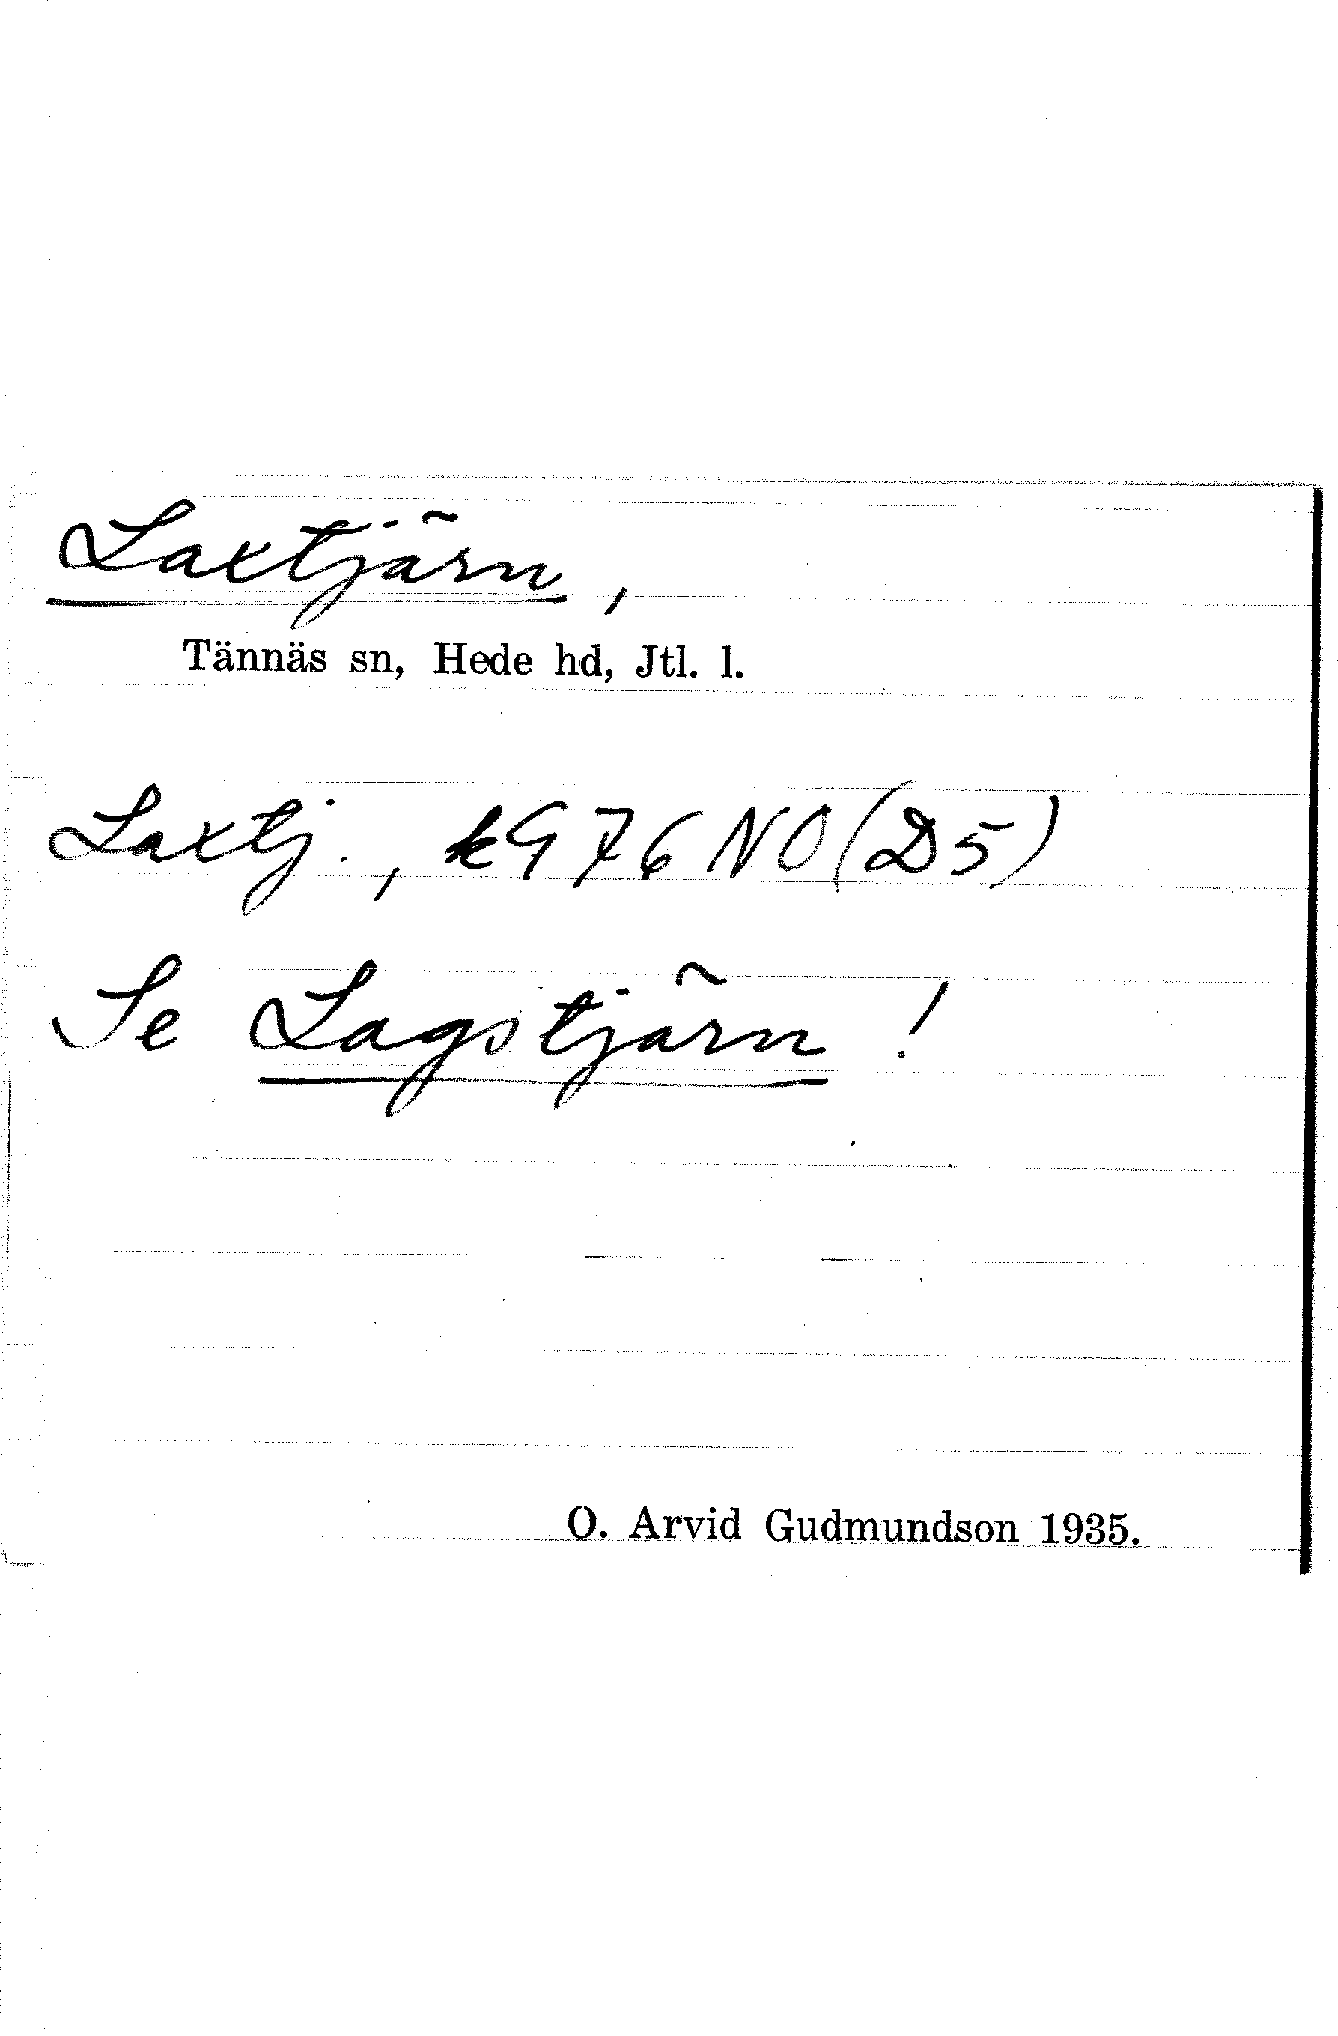 Laxtjärn,
Tännäs sn, Hede hd, Jtl. l.
Laxtj., kG 76 NO (D5)
Se Lagstjärn!
O. Arvid Gudmundson 1935.